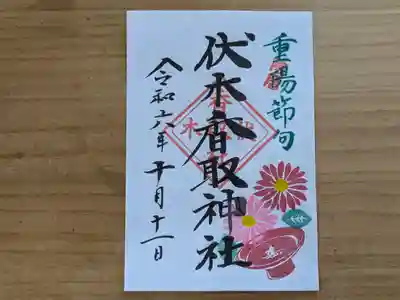 重陽節句
伏木香取神社
令和六年十月十一日